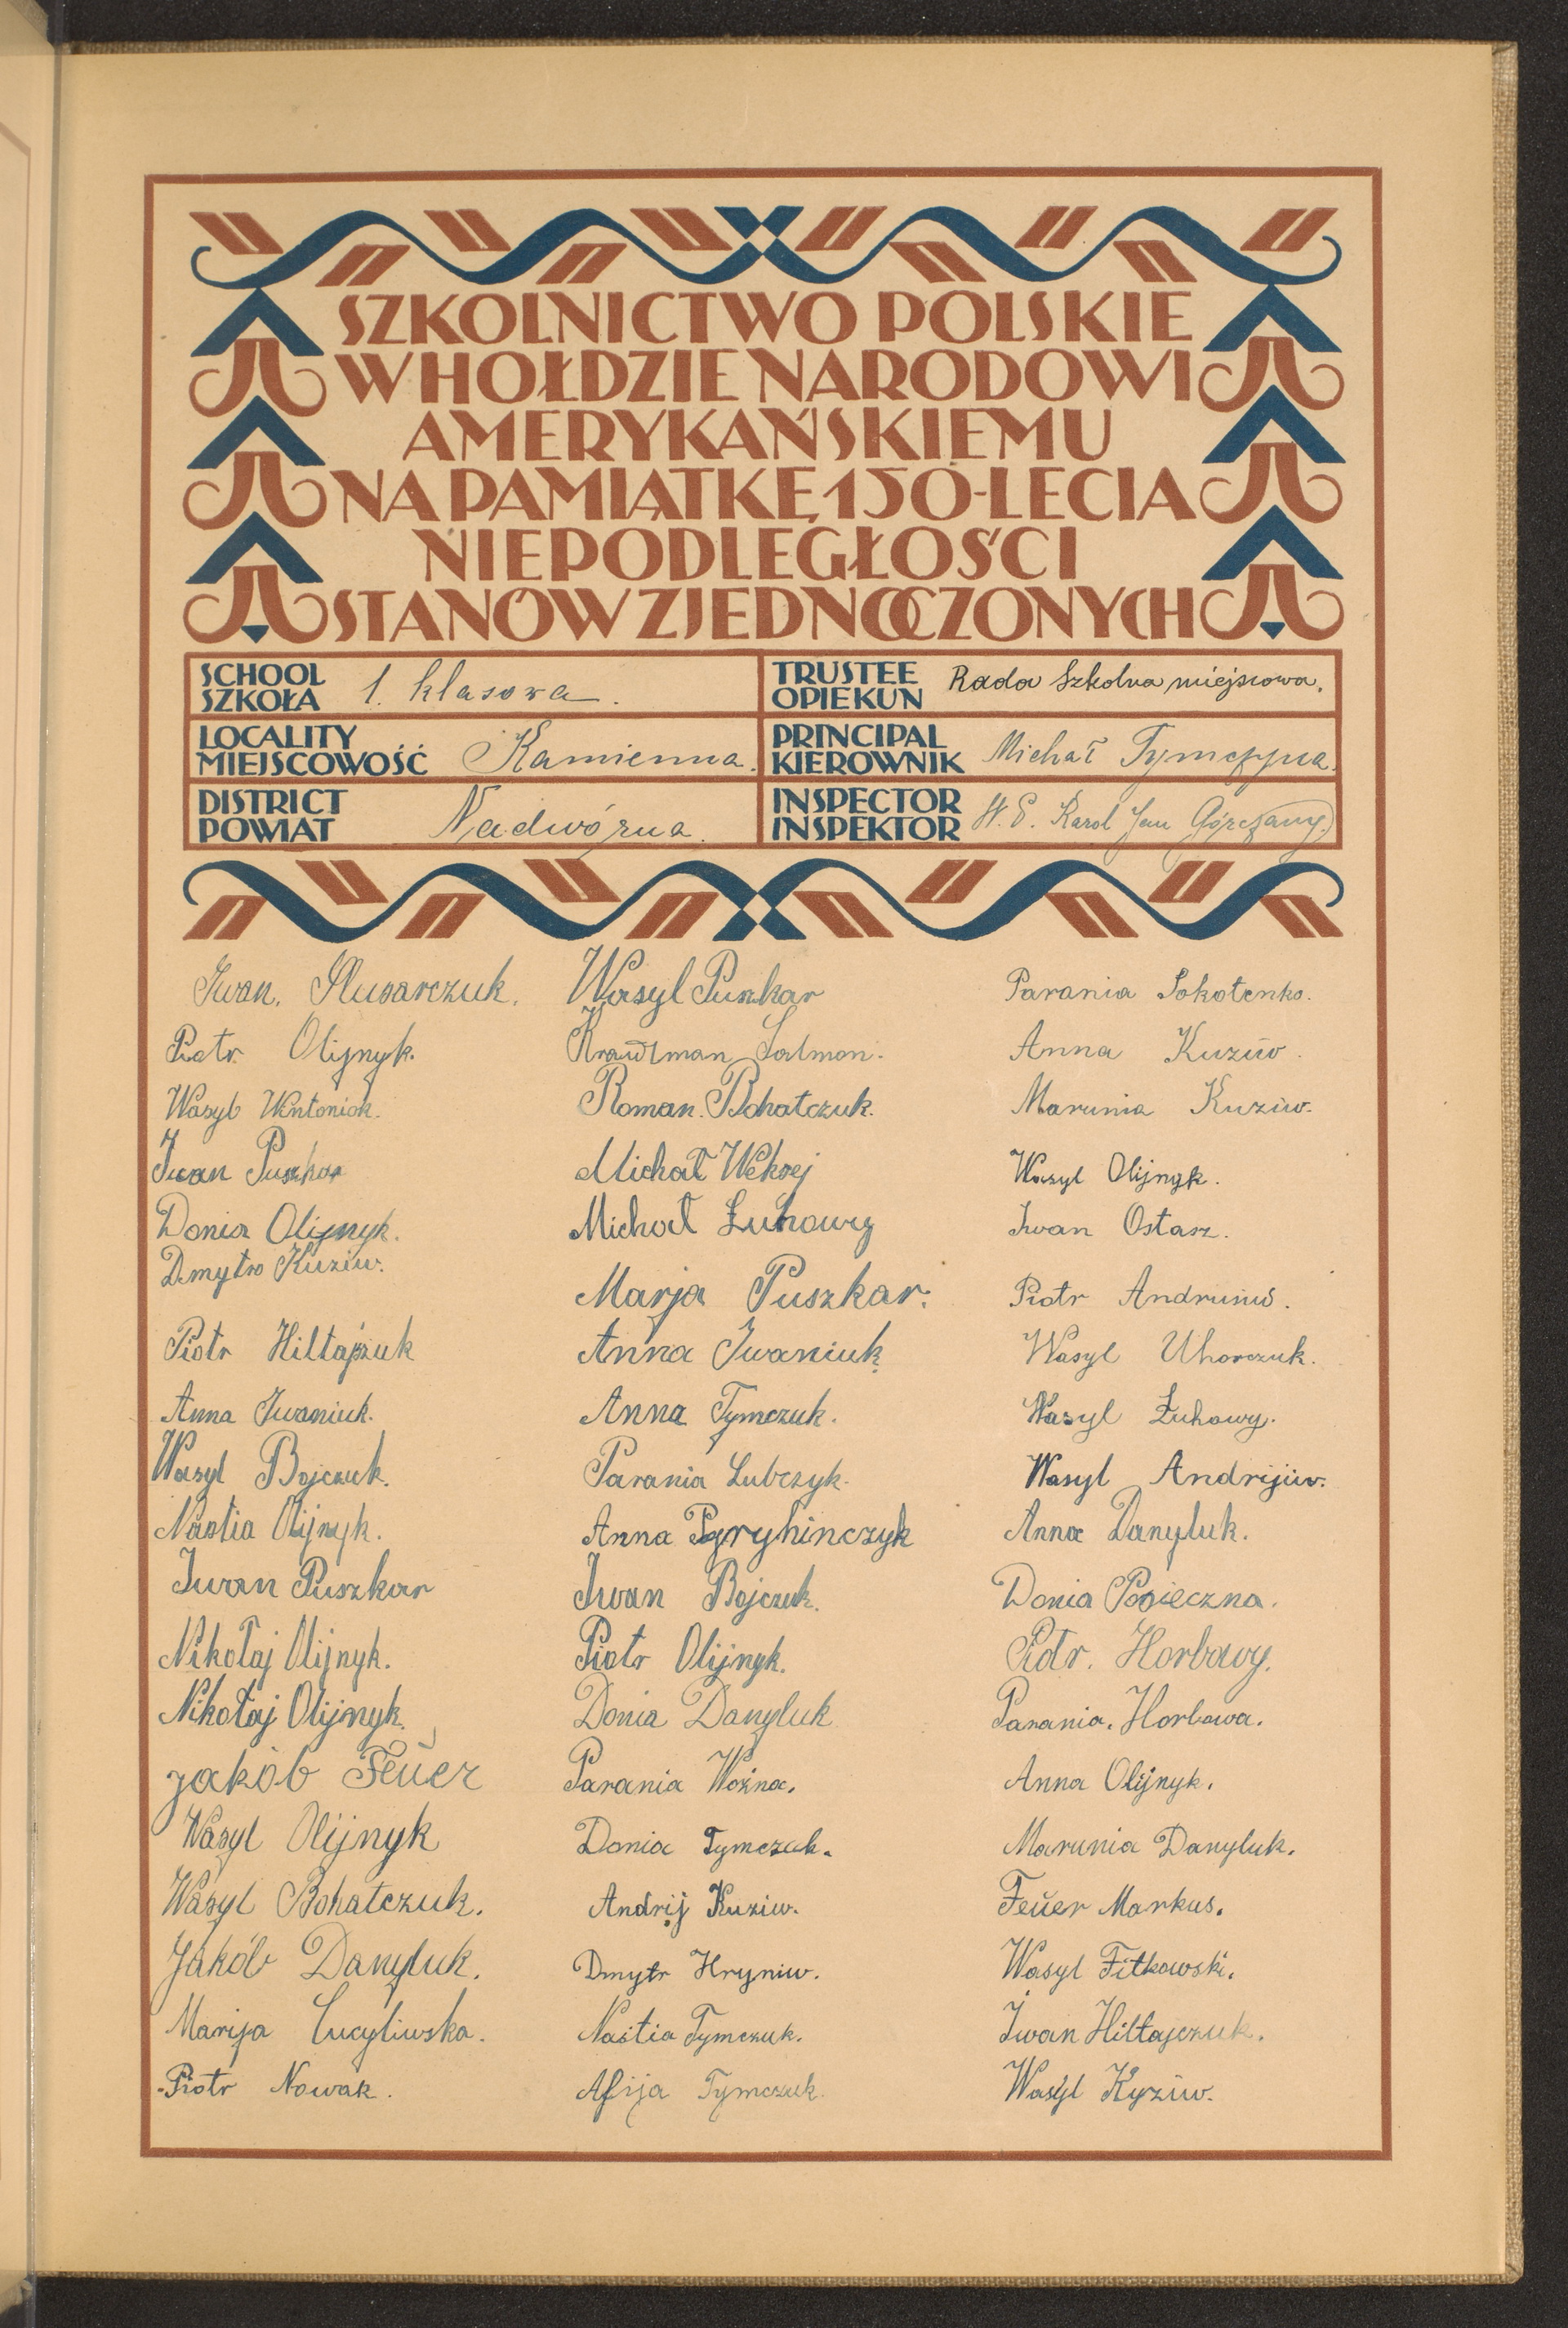 SZKOLNICTWO POLSKIE
W HOŁDZIE NARODOWI
AMERYKAŃSKIEMU
NA PAMIĄTKĘ 150-LECIA
NIEPODLEGŁOŚCI
STANÓW ZJEDNOCZONYCH
SCHOOL
SZKOŁA 1. klasowa.
TRUSTEE
OPIEKUN Rada Szkolna miejscowa.
LOCALITY
MIEJSCOWOŚĆ Kamienna.
PRINCIPAL
KIEROWNIK Michał
DISTRICT
POWIAT Nadwórna.
INSPECTOR
INSPEKTOR Karol Jan
Iwan. Slusarczuk.
Piotr. Olijnyk.
Wasyl
Iwan Puszkar
Donia Olijnyk.
Dmytro Kuziw.
Piotr Hiltajczuk
Anna Iwaniuk.
Wasyl Bojczuk.
Nastia Olijnyk.
Iwan Puszkar
Nikołaj Olijnyk.
Nikołaj Olijnyk.
Jakób Feuer
Wasyl Olijnyk
Wasyl Bohatczuk.
Jakób Danyluk.
Marija
Piotr Nowak.
Wasyl Puszkar
Salmon.
Roman. Bohatczuk.
Michał
Michał Łuhowy
Marja Puszkar.
Anna Iwaniuk.
Anna Tymczuk.
Parania Lubczyk.
Anna
Iwan Bojczuk.
Piotr Olijnyk.
Donia Danyluk
Parania Woźna.
Donia Tymczuk.
Andrij Kuziw.
Dmytr Hryniw.
Nastia Tymczuk.
Afija Tymczuk.
Parania Sokotenko.
Anna Kuziw.
Marunia Kuziw.
Wasyl Olijnyk.
Iwan Ostasz.
Piotr Andrusiw.
Wasyl Uhorczuk.
Wasyl Łuhowy.
Wasyl Andrijiw.
Anna Danyluk.
Donia
Piotr. Horbowy.
Parania. Horbowa.
Anna Olijnyk.
Marunia Danyluk.
Feuer Markus.
Wasyl Fitkowski.
Iwan Hiltajczuk.
Wasyl Kyziw.